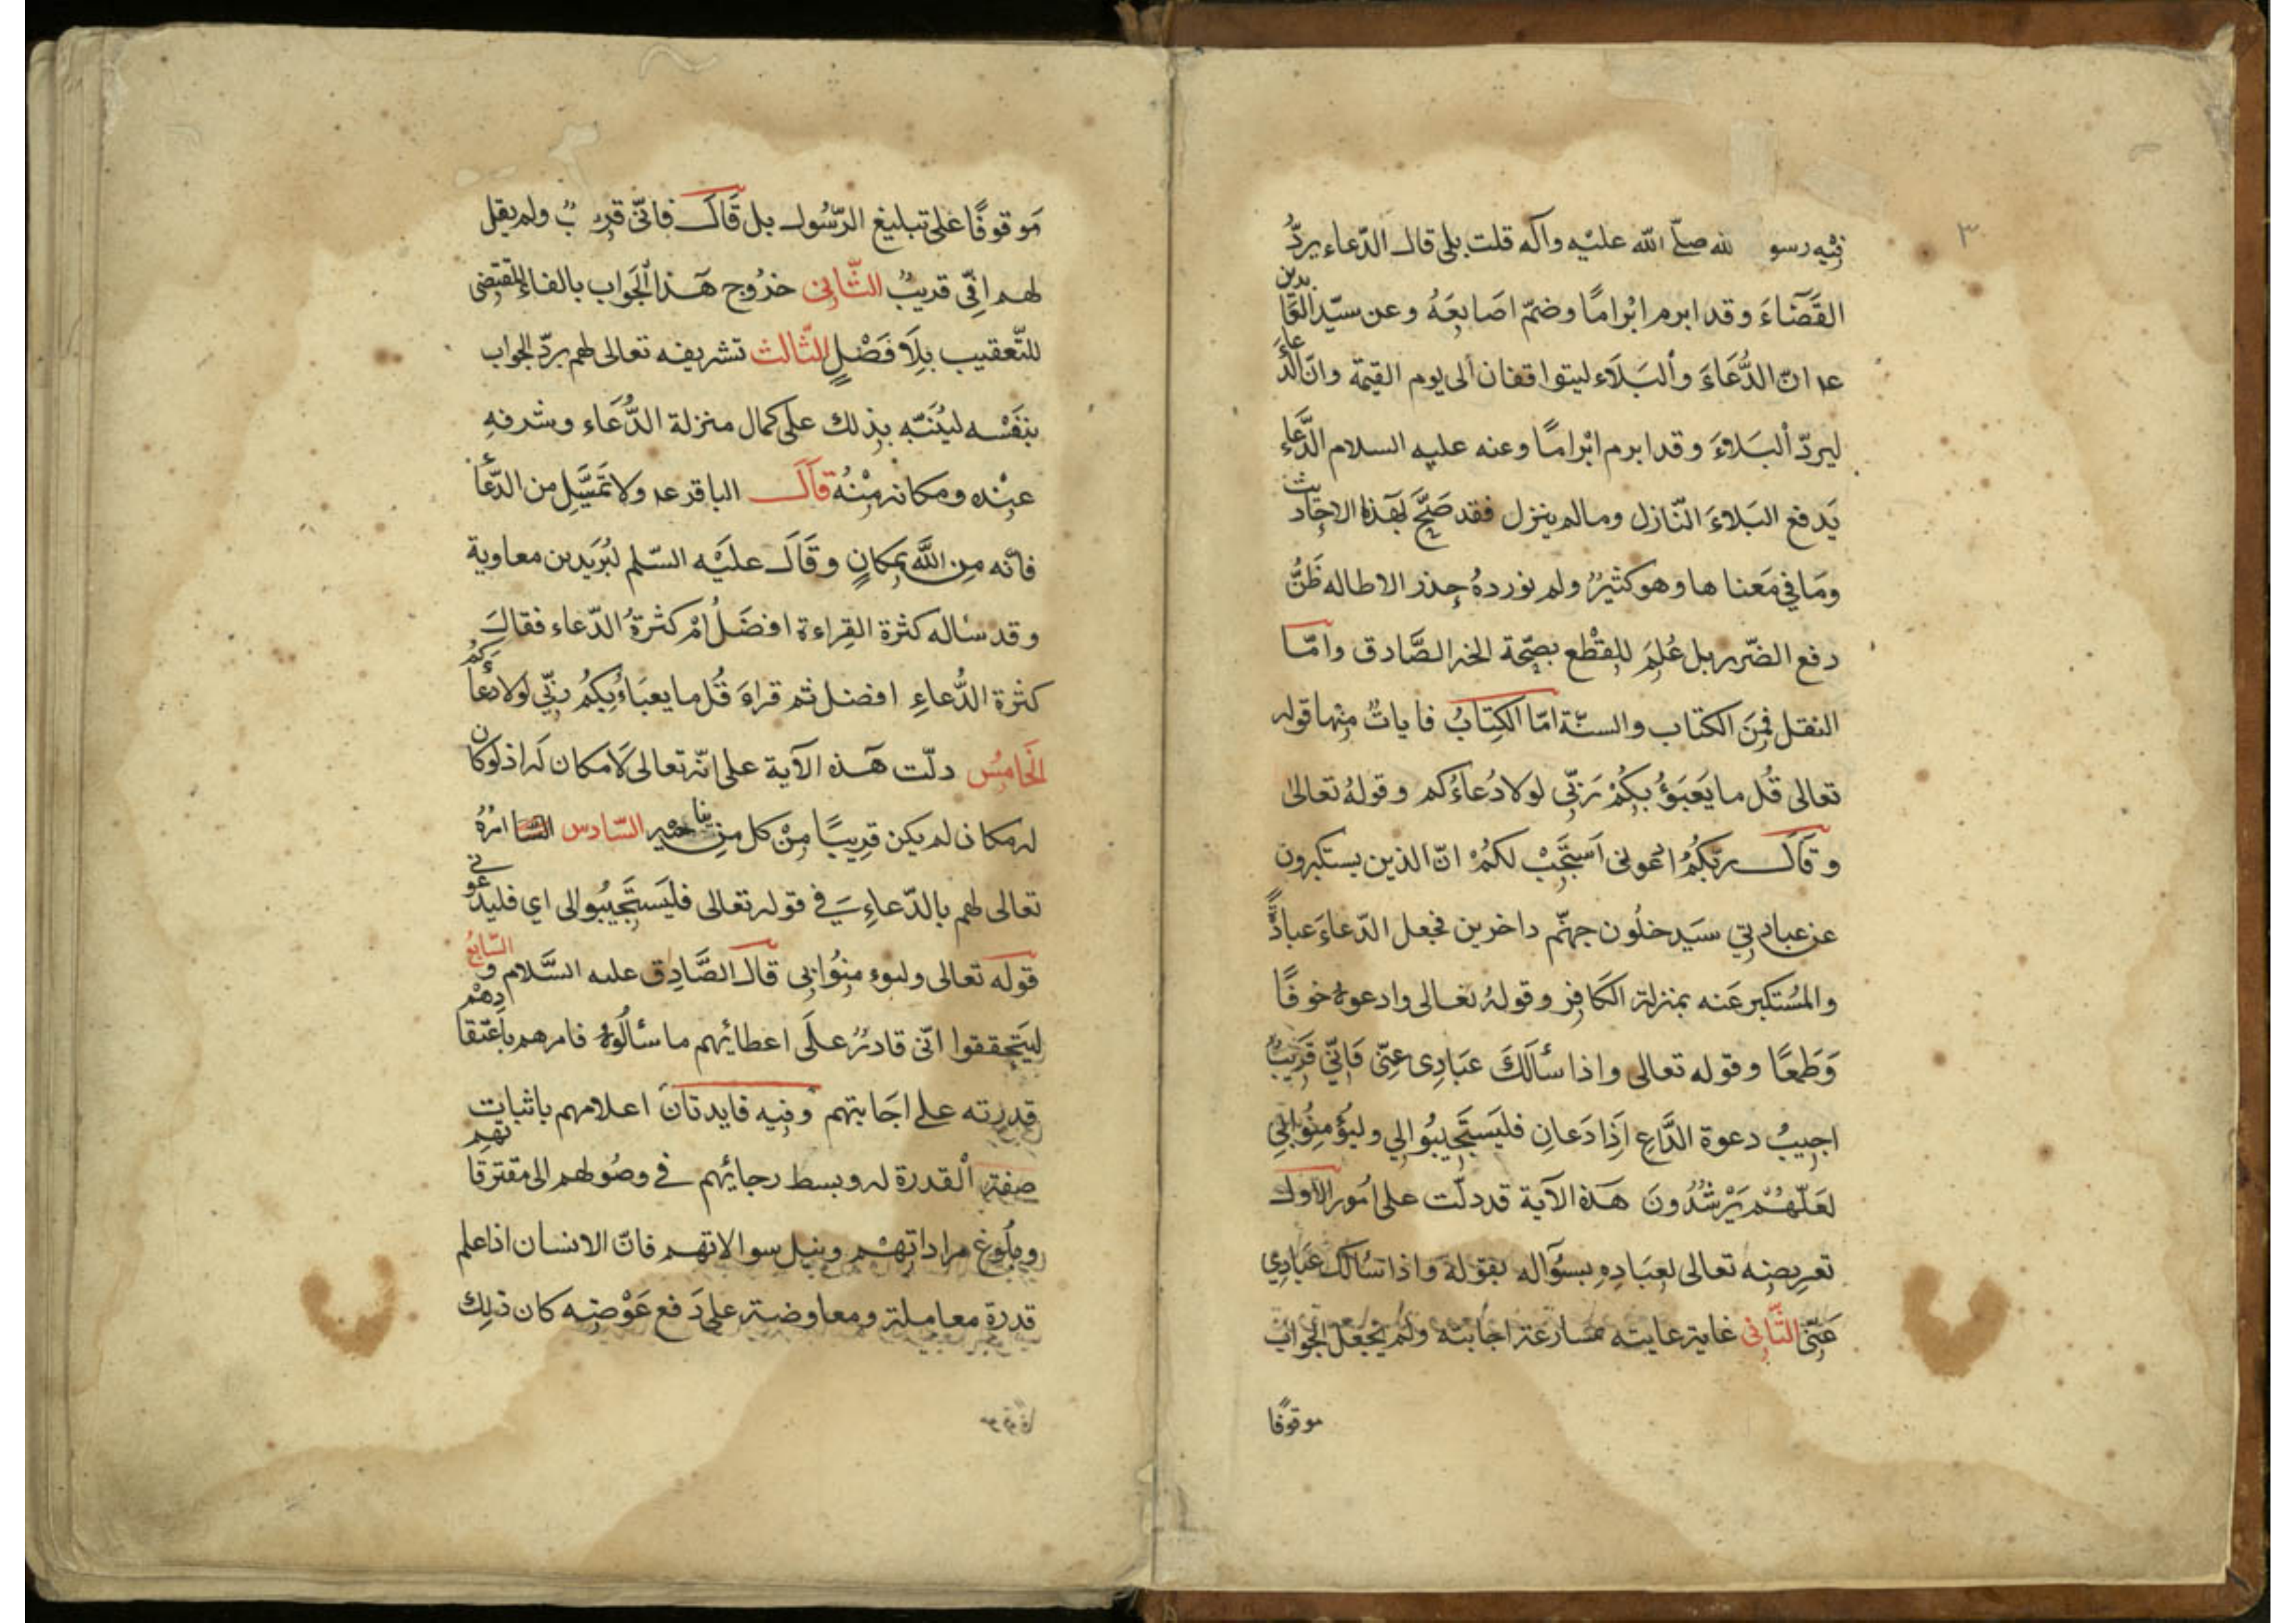 ٣
فيه رسو لله صلّى الله عليه وآله قلت بلى قال الدّعاء يردّ
القَضَاءَ وقد ابرم ابْرامًا وضمّ اصَابعَهُ وعن سيّد العابدين
عه انّ الدُّعَاءَ وألبَلَاء ليتواقفان ألى يوم القيمة وانّ الدّعاءَ
ليردّ ألبَلاءَ وقد ابرم ابْرامًا وعنه عليه السلام الدّعاء
يَدفع البَلاءَ النّازل وما لم ينزل فقد صَحَّ بهذه الاحاديث
ومَا في مَعناها وهو كثيرٌ ولم نوردهُ حِذر الاطاله ظَنُّ
دفع الضّرر بل عُلِمَ للِقْطع بصِحّة الخبر الصَّادق وامّا
النقل فِمنَ الكتاب والسنّة امّا الكِتابُ فاياتٌ مِنها قوله
تعالى قُل ما يَعَبَؤُ بِكُمْ رَبّي لولا دُعاءُكم وقولهُ تعالى
وقَالَ ربّكُمُ ادعونى أسْتَجِبْ لكُمْ انّ الذين يستكبرون
عن عبادتي سَيَدخلُون جهنّم داخرين فجعل الدّعاءَ عبادةً
والمُستكبر عَنه بمنزلة الكَافِر وقولهُ تعالى وادعوهُ خوفًا
وَطَمعًا وقوله تعالى واذا سألَكَ عبَادِى عنِّى فَإنّي قَريبٌ
اجيبُ دعوة الدَّاعِ إذَا دَعانِ فليَستَجِيبُوا لي وليؤُمنِوُا بي
لعَلّهُمْ يَرْشدُونَ هَذه الآية قد دلّت على اُمور الاول
تعرِيضِه تعالى لعِبَادِهِ بسُؤاله بقولهَ وَاذا سَالك عَبادِي
عَنّى الثّانى غاية عنايته بمسارعة اجابته ولَم يَجعَل الجواب
موقوفًا
مَوقوفًا على تبليغ الرّسُول بل قَالَ فاِنّى قرِيبٌ ولم يقل
لهم اِنّي قريبٌ الثّانى خرُوج هَذا الجَواب بالفاء المقتضى
للتّعقيب بِلَا فَصْلٍ الثّالث تشريفه تعالى لهم بردّ الجواب
بنَفْسه ليُنَبّه بذِلك على كمال منزلة الدُّعَاء وشرفهِ
عِنْده ومكانه مِنْهُ قَالَ الباقر عه ولا تَمَلَّ من الدّعاء
فانّه مِن اللَّه بِمَكانٍ وقَالَ عليَْه السّلم لبُرَيد بن معاوية
وقد ساله كثرة القِراءة افضَلُ امْ كثرةُ الدّعاء فقال
كثرة الدُّعاءِ افضل ثم قراءَ قُل ما يعبَاءُ بِكُمُ ربّي لولا دعاؤكم
الخَامِسُ دلّت هَذه الآية على انّه تعالى لَا مكان لَه اذ لوكان
له مكان لم يكن قرِيبًا مِنْ كل من يناجيه السّادس امرُهُ
تعالى لهم بالدّعاءِ في قوله تعالى فليَستَجِيبُوا لى اي فليدعوني
السّابعُ
قوله تعالى وليوءمِنُوا بى قال الصَّادِق عليه السَّلام و
ليَتحققوا انّى قادرٌ علَى اعطائهم ما سألُوهُ فامرهم باعتقادهم
قدرته على اجَابتهم وفيه فايدتان اعلامهم باثبات
صفة ألقدرة له وبسط رجائهم في وصُولهم الى مقترقاتهم
وبلُوغ مراداتِهْم ونيل سوالاتهم فانّ الانسان اذا علم
قدرة معاملة ومعاوضة على دَفع عَوْضِه كان ذلِك